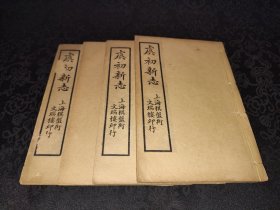 虞初新志
上海棋盤街
文瑞樓印行
虞初新志
上海棋盤街
文瑞樓印行
虞初新志
上海棋盤街
文瑞樓印行